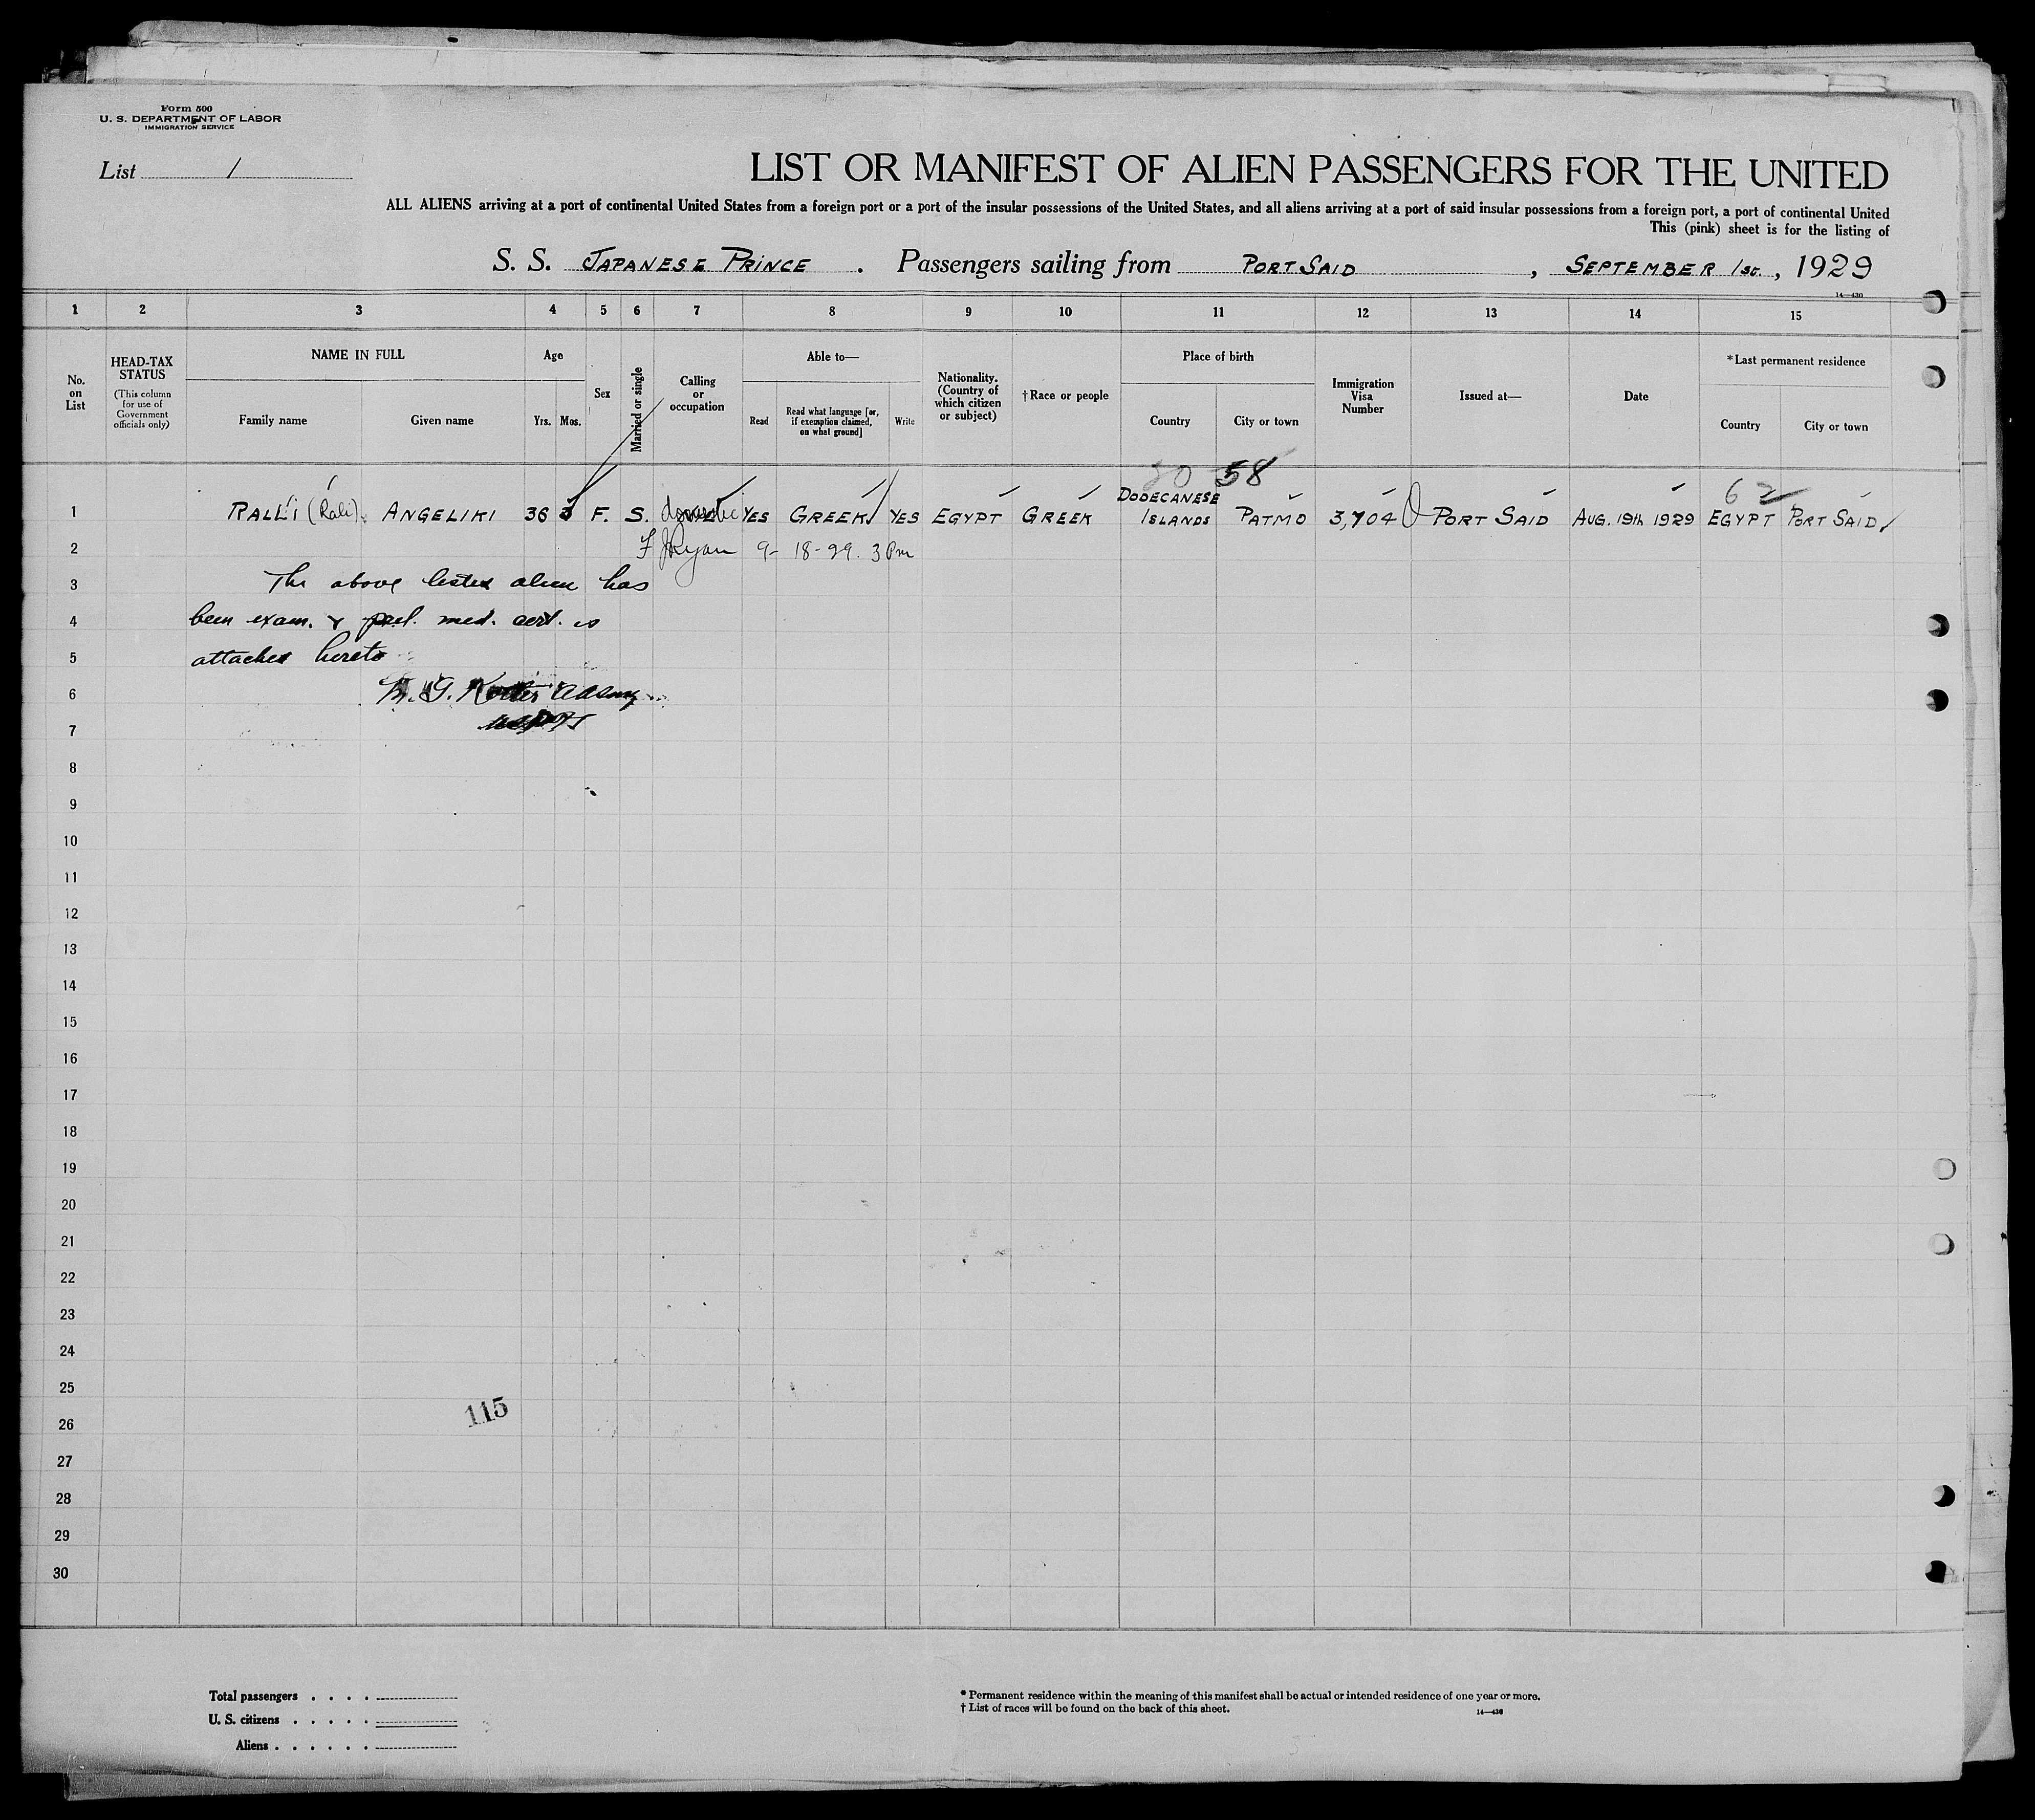 Form 500
U. S. DEPARTMENT OF LABOR
IMMIGRATION SERVICE
List 1
LIST OR MANIFEST OF ALIEN PASSENGERS FOR THE UNITED
ALL ALIENS arriving at a port of continental United States from a foreign port or a port of the insular possessions of the United States, and all aliens arriving at a port of said insular possessions from a foreign port, a port of continental United
This (pink) sheet is for the listing of
S. S. JAPANESE PRINCE . Passengers sailing from PORT SAID , SEPTEMBER 1st. , 1929
14—430
1 2 3 4 5 6 7 8 9 10 11 12 13 14 15
No. on List
HEAD-TAX STATUS
(This column for use of Government officials only)
NAME IN FULL
Family name
Given name
Age
Yrs. Mos.
Sex
Married or single
Calling or occupation
Able to—
Read
Read what language [or, if exemption claimed, on what ground]
Write
Nationality. (Country of which citizen or subject)
†Race or people
Place of birth
Country
City or town
Immigration Visa Number
Issued at—
Date
*Last permanent residence
Country
City or town
58
62
1 RALLI (Rali) ANGELIKI 36 3 F. S. domestic YES GREEK YES EGYPT GREEK DODECANESE ISLANDS PATMO 3,704 PORT SAID AUG. 19th 1929 EGYPT PORT SAID
2 F J Ryan 9-18-29. 3 Pm
3 The above listed alien has
4 been exam. & med. cert. is
5 attached hereto
6
7
8
9
10
11
12
13
14
15
16
17
18
19
20
21
22
23
24
25
115
26
27
28
29
30
Total passengers . . . .
U. S. citizens . . . . .
Aliens . . . . . .
* Permanent residence within the meaning of this manifest shall be actual or intended residence of one year or more.
† List of races will be found on the back of this sheet.
14—430